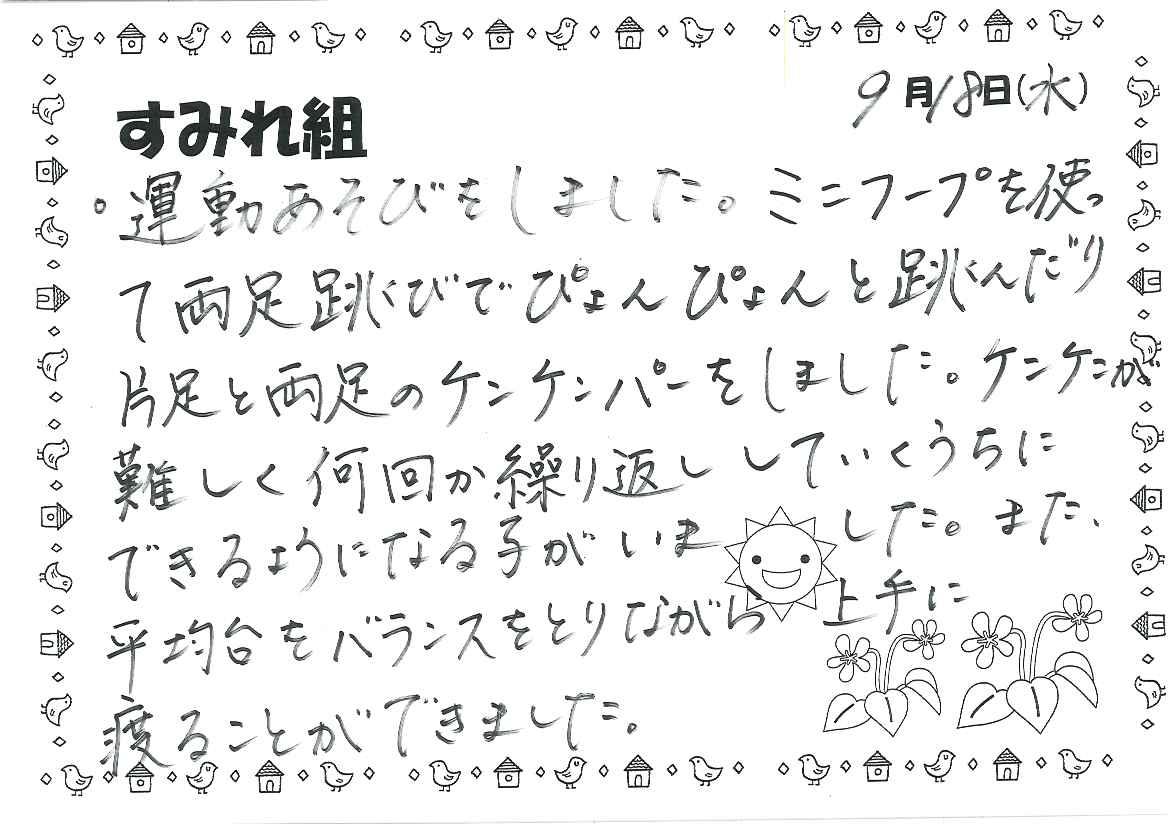 9月18日(水)
すみれ組
。運動あそびをしました。ミニフープを使っ
て両足跳びでぴょんぴょんと跳んだり
片足と両足のケンケンパーをしました。ケンケンが
難しく何回か繰り返ししていくうちに
できるようになる子がいました。また、
平均台をバランスをとりながら上手に
渡ることができました。